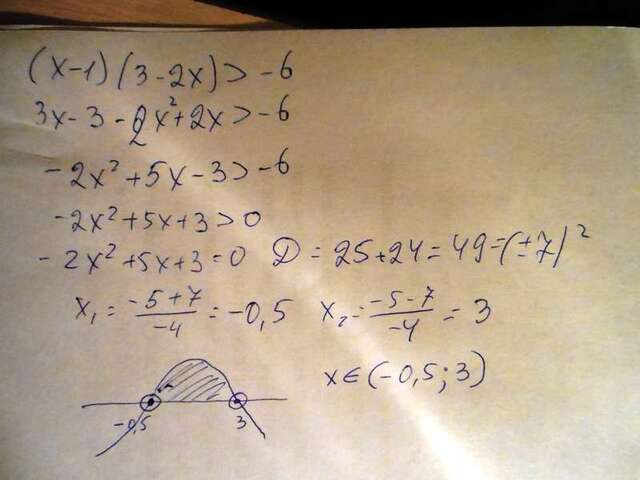 (x-1)(3-2x)>-6
3x-3-2x²+2x>-6
-2x²+5x-3>-6
-2x²+5x+3>0
-2x²+5x+3=0 D=25+24=49=(±7)²
x₁=(-5+7)/(-4)=-0,5 x₂=(-5-7)/(-4)=3
x∈(-0,5;3)
-0,5 3